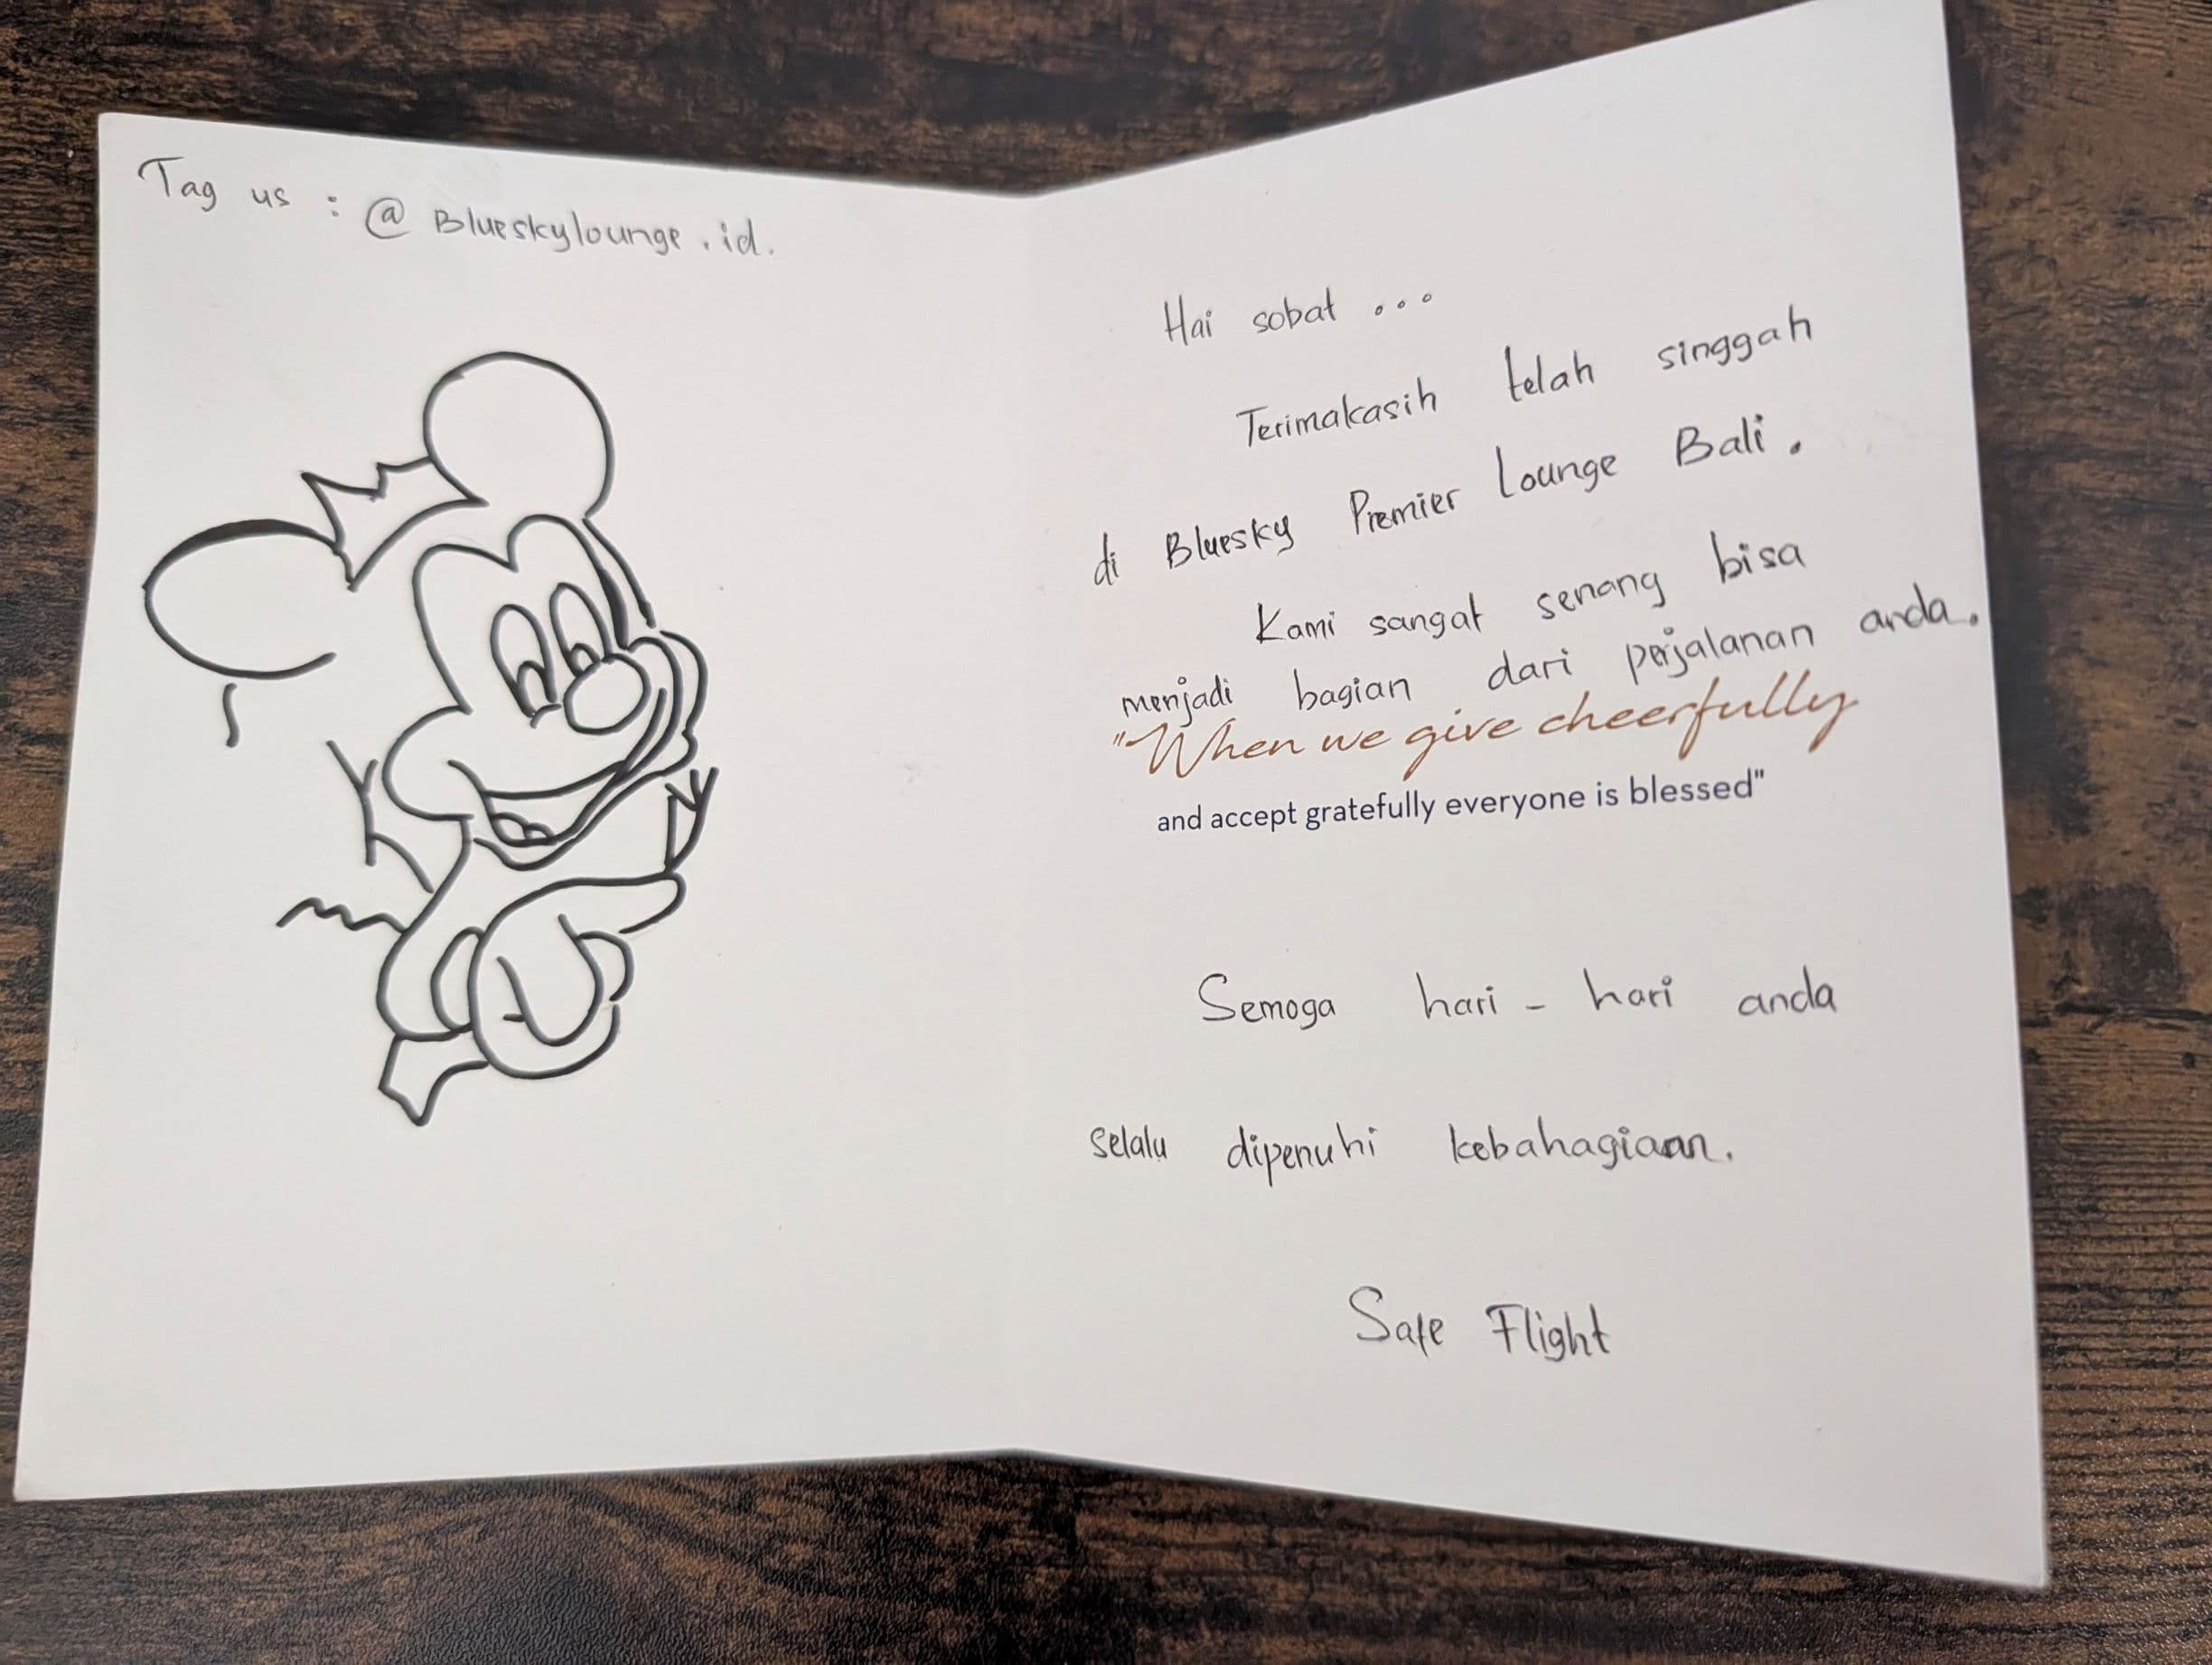 Tag us : @ Blueskylounge.id.
Hai sobat ...
Terimakasih telah singgah
di Bluesky Premier Lounge Bali.
Kami sangat senang bisa
menjadi bagian dari perjalanan anda.
"When we give cheerfully
and accept gratefully everyone is blessed"
Semoga hari - hari anda
selalu dipenuhi kebahagiaan.
Safe Flight